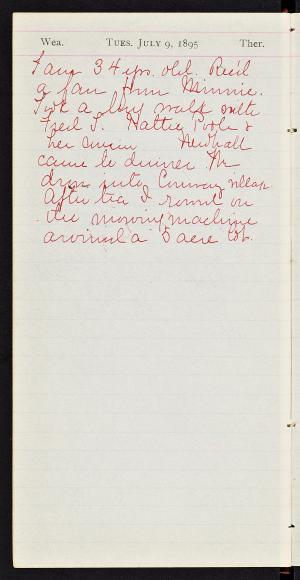 Wea. TUES. JULY 9, 1895 Ther.
I am 34 yrs. old. Rec'd
a fan from Minnie.
Took a long walk with
Fred S. Hattie Poole &
her cousin Newhall
came to dinner. We
drove into Conway village
After tea I round on
the mowing machine
around a 5 acre lot.